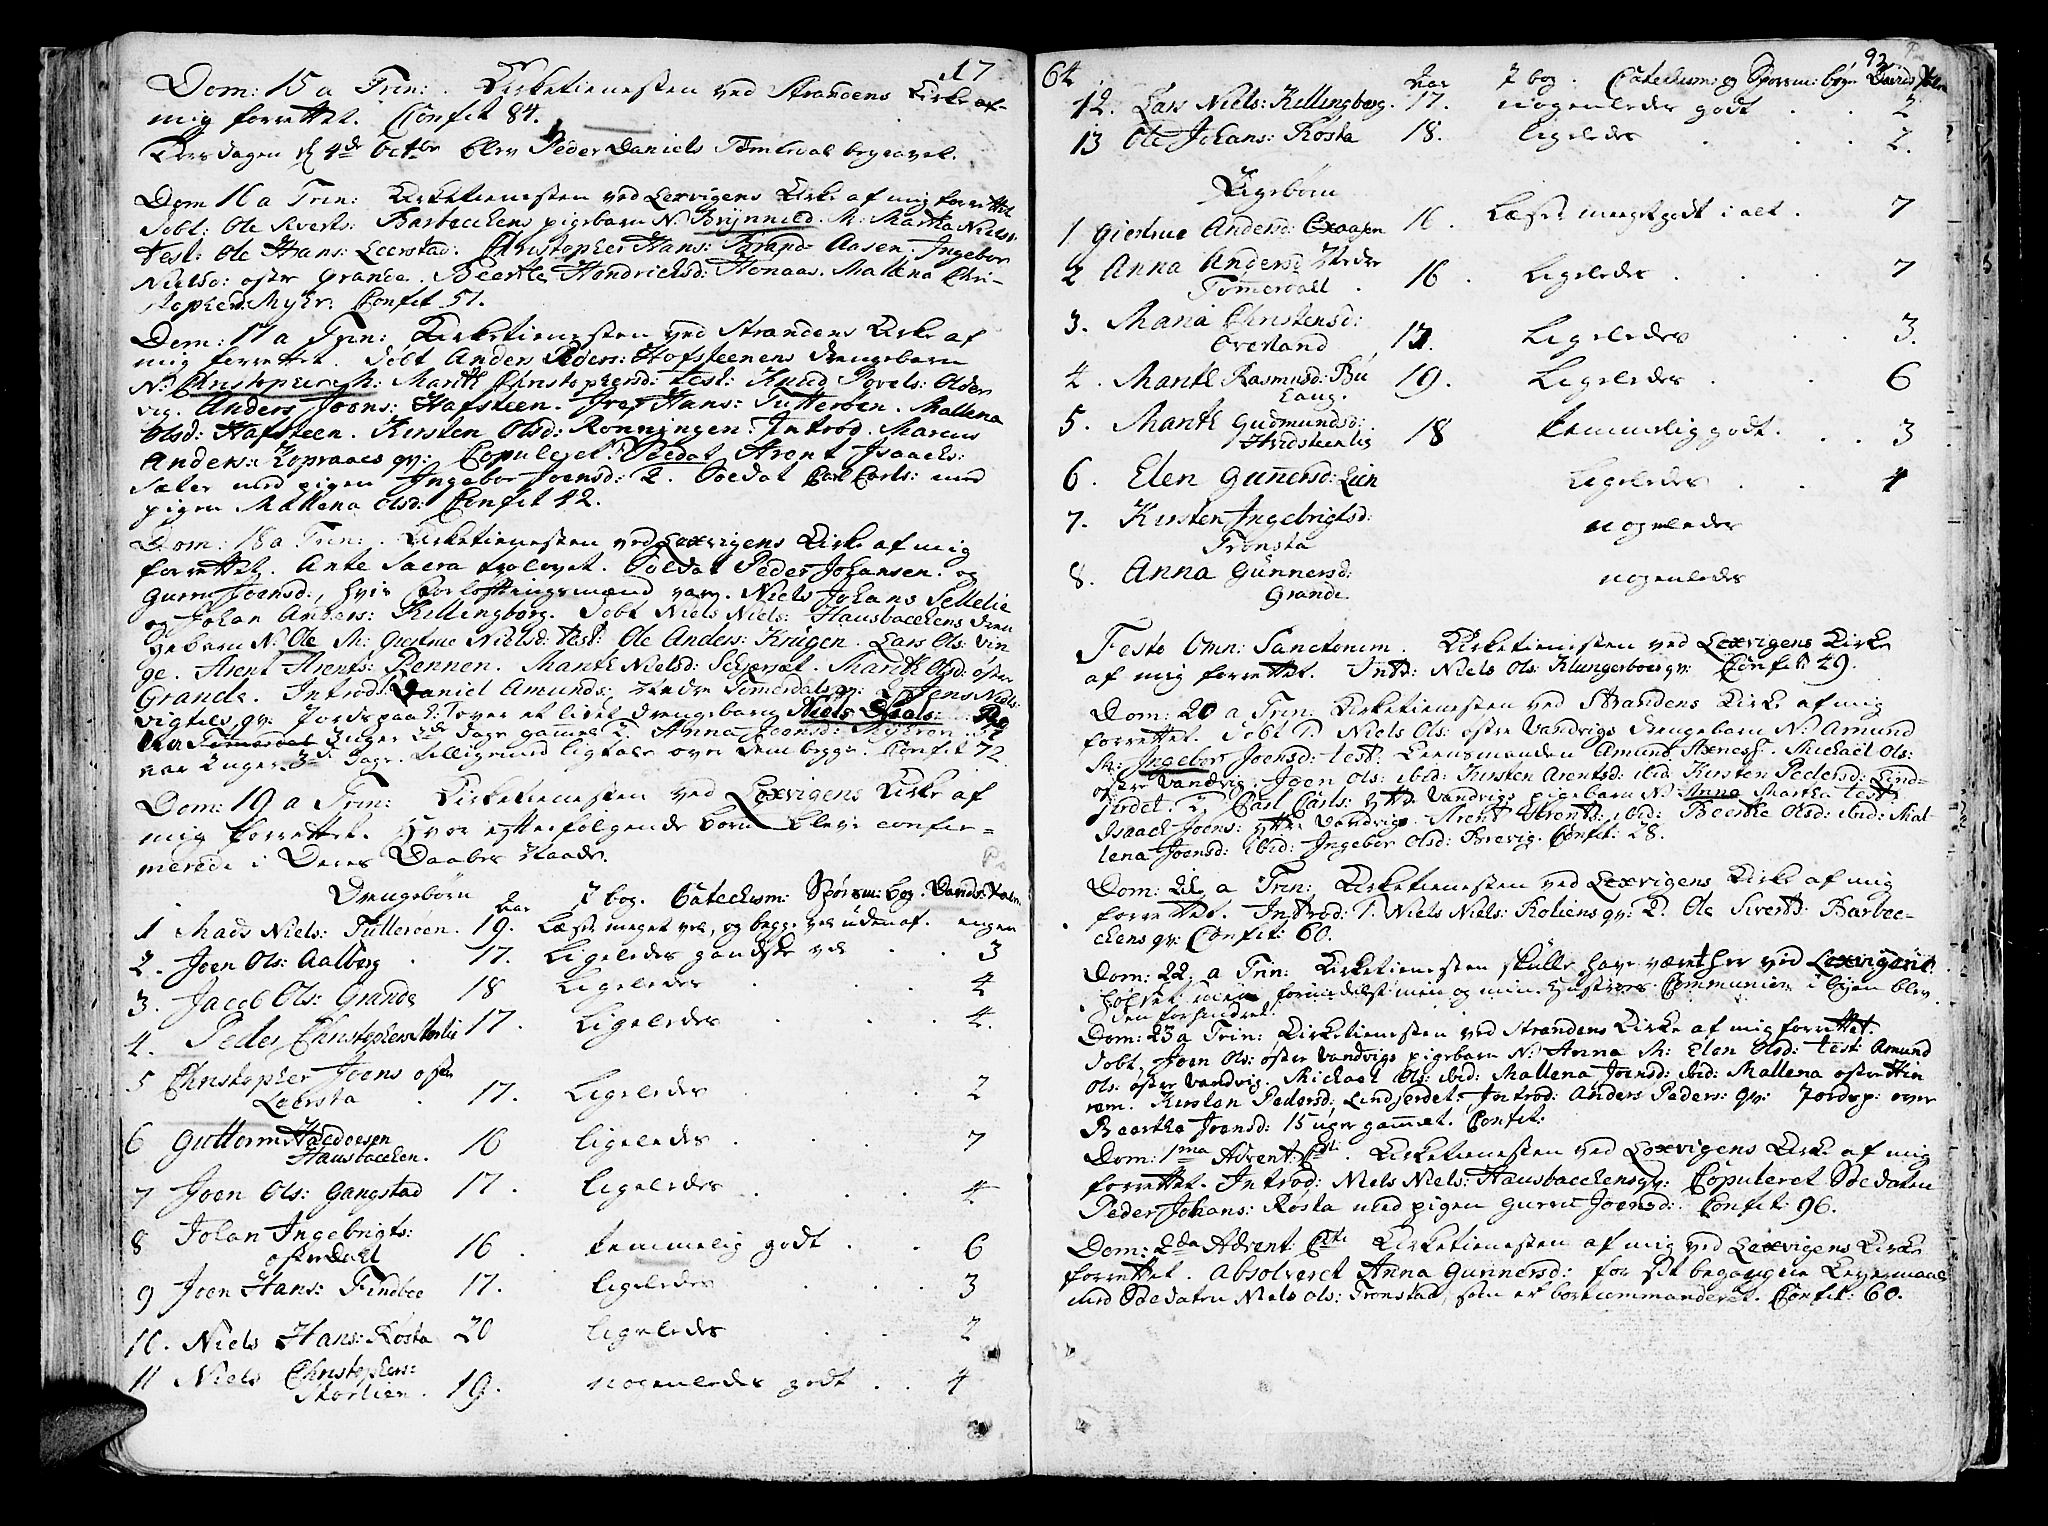 17
Dom: 15 a Trin: Kirketienesten ved Strandens Kirke af
mig forrettet. Confit 84.
Torsdagen d 4de Octbr blev Peder Daniels Tømerdal begravet.
Dom 16 a Trin: Kirketienesten ved Lexvigens Kirke af mig forrettet
Døbt: Ole Siverts: Barbacchens pigebarn N: Brynnild. M: Martha Nielsd:
test: Ole Hans: Leerstad. Christopher Hans: Brand Aasen. Ingebor
Nielsd: østr Grande. Beerte Hendrichsd: Henaas. Mallena Chri-
stophersd: Myhr. Confit 51.
Dom: 17 a Trin: Kirketienesten ved Strandens Kirke af
mig forrettet. Døbt Anders Peders: Hofsteenens drengebarn
N: Christopher M: Marith Christophersd: test: Knud Povels: Older
vig. Anders Joens: Hafsteen. Hans: Tutterøen. Mallena
Olsd: Hafsteen. Kirsten Olsd: Rønningen. Introd. Marcus
Anders: Kopraaes qv: Copuleret: Soldat Arent Isaachs:
Sæter med pigen Ingebor Joensd: 2. Soldat Carl Carls: med
pigen Mallena Olsd: Confit 42.
Dom: 18 a Trin: Kirketienesten ved Lexvigens Kirke af mig
forrettet. Ante Sacra trolovet. Soldat Peder Johansen og
Guru Joensd:, hvis Forlovningsmænd var. Niels Johans Sellelie
og Johan Anders: Killingberg. Døbt Niels Niels: Hausbacchens dren
gebarn N: Ole M: Giertrue Nielsd: test: Ole Anders: Krügen. Lars Ols: Vin
ge. Arent Arents: Rennen. Marith Nielsd: Schiervet. Marith Olsd: øster
Grande. Introd: Daniel Amunds: Nedre Tømerdals qv: Jens Niels:
Vigtils qv: Jordspaad: over et lidet drengebarn Niels Niels:
uger 2de Dage gamel 2. Anna Joensd: Myhren
var uger 3de Dage. Confit 72.
Dom: 19 a Trin: Kirketienesten ved Lexvigens Kirke af
mig forrettet. Hvor efterfølgende børn bleve confir=
merede i Deres Daabes Naade.
Drengebørn Aar I bog. Catechism: Spørsm: bog. Davids Psalm:
1 Mads Niels: Tutterøen. 19. Læser meget vel, og begge vel udenaf. ingen
2. Joen Ols: Aalberg 17. Ligeledes gandske vel 3
3. Jacob Ols: Grande 18 Ligeledes 4
4. Peder Christophers Storlie 17. Ligeledes 4.
5 Christopher Joens øster
Leersta 17. Ligeledes 2
6 Guttorm Haldorsen
Hausbacchen. 16 Ligeledes 7
7 Joen Ols: Gangstad 17. Ligeledes 4
8 Johan Ingebrigts:
østerdahl 16 temmelig godt 6
9 Joen Hans: Findboe 17. Ligeledes 3
10. Niels Hans: Røsta 20 Ligeledes 2
11 Niels Christophers:
Storlien. 19. nogenledes godt 4
64 93
Aar I bog. Catechism: og Spørsm: bøger Davids Psalm
12. Lars Niels: Killingberg. 17. nogenledes godt 2
13 Ole Johans: Røsta 18. Ligeledes 2.
Pigebørn
1 Giertrue Andersd: Oxaasen 16. Læser meget godt i alt. 7
2 Anna Andersd: Nedre
Tømerdall 16. Ligeledes 7
3. Maria Christensd:
Overland 17. Ligeledes 3.
4. Marith Rasmusd: Bü
laug. 19. Ligeledes 6
5. Marith Gudmundsd:
Hvidsteenlie 18 temmelig godt. 3
6. Elen Gunersd: Lien Ligeledes 4
7. Kirsten Ingebrigtsd:
Trønsta nogenledes
8. Anna Gunnersd:
Grande. nogenledes
Festo Omn: Sanctorum. Kirketienesten ved Lexvigens Kirke
af mig forrettet. Intr: Niels Ols: Klungerboes qv: Confit: 49.
Dom: 20 a Trin: Kirketienesten ved Strandens Kirke af mig
forrettet. Døbt 1. Niels Ols: østre Vandvigs drengebarn N: Amund
M: Ingebor Joensd: test: Leensmanden Amund Axness. Michael Ols:
østre Vandvig. Joen Ols: ibid: Kirsten Arentsd: ibid: Kirsten Pedersd: Lind-
fiørdet. 2. Carl Carls: ytte Vandvigs pigebarn N: Anna Martha test:
Isaach Joens: ytte Vandvig. Arent Arents: ibid: Beerthe Olsd: ibid: Mal-
lena Joensd: ibid: Ingebor Olsd: Brevig. Confit: 28.
Dom: 21 a Trin: Kirketienesten ved Lexvigens Kirke af mig
forrettet. Introd: 1. Niels Niels: Koliens qv: 2. Ole Siverts: Barbac-
chens qv: Confit: 60.
Dom: 22. a Trin: Kirketienesten skulle have været her ved Lexvigen
holdet, men formedelst min og min Hustrues Communion i byen blev
den forhindret.
Dom: 23 a Trin: Kirketienesten ved Strandens Kirke af mig forrettet.
Døbt, Joen Ols: øster Vandvigs pigebarn N: Anna M: Elen Olsd: test: Amund
Ols: øster Vandvig. Michael Ols: ibid: Mallena Joensd: ibid: Mallena østre Hin
rem. Kirsten Pedersd: Lindfiørdet: Introd: Anders Peders: qv: Jordsp: over
Beertha Joensd: 15 uger gammel. Confit:
Dom: 1ma Advent: Christi. Kirketienesten ved Lexvigens Kirke af mig
forrettet. Introd: Niels Niels: Hausbacchens qv: Copuleret Soldaten
Peder Johans: Røsta med pigen Guru Joensd: Confit: 96.
Dom: 2da Advent: Christi Kirketienesten af mig ved Lexvigens Kirke
forrettet. Absolveret Anna Gunnersd: for sit begangne Leyermaal
med Soldaten Niels Ols: Trønstad, som er bortcommanderet. Confit: 60.